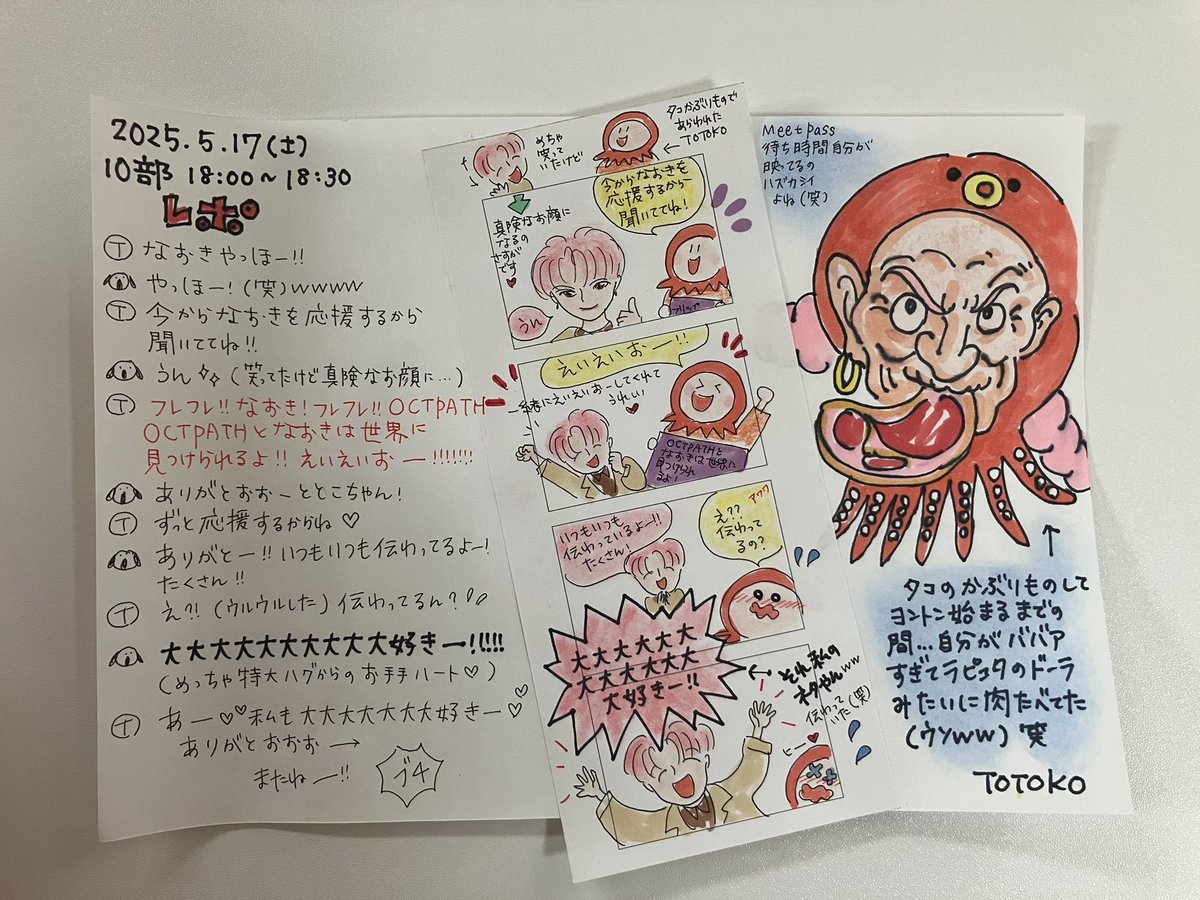 2025.5.17(土)
10部 18:00~18:30
レポ
T なおきやっほー!!
やっほー!(笑)wwww
T 今からなおきを応援するから
聞いててね!!
うん(笑ってたけど真険なお顔に…)
T フレフレ!!なおき!フレフレ!!OCTPATH
OCTPATHとなおきは世界に
見つけられるよ!!えいえいおー!!!!!!!
ありがとおおーととこちゃん!
T ずっと応援するからね♡
ありがとー!!いつもいつも伝わってるよー!
たくさん!!
T え?!(ウルウルした)伝わってるん?
大大大大大大大大大大好きー!!!!!
(めっちゃ特大ハグからのお手手ハート♡)
T あー♡♡私も大大大大大大大好きー♡♡
ありがとおおお→
またねー!!
ブチ
めちゃ
笑って
いたけど
タコかぶりもので
あらわれた
←TOTOKO
今からなおきを
応援するから
聞いててね!
真険なお顔に
なるの
さすが
です
♥
うん
フリップ
えいえいおー!!
一緒にえいえいおーしてくれて
うれしい♥
OCTPATHと
なおきは世界に
見つけられ
るよ!
いつもいつも
伝わっているよー!!
たくさん!
アワワ
え??
伝わって
るの?
大大大大大大
大大大大大大
大好きー!!
それ私の
オタやんww
伝わって
いた(笑)
ヒー♥
Meetpass
待ち時間自分が
映ってるの
ハズカシイ
よね(笑)
↑
タコのかぶりものして
ヨントン始まるまでの
間…自分がババア
すぎてラピュタのドーラ
みたいに肉たべてた
(ウソww)笑
TOTOKO